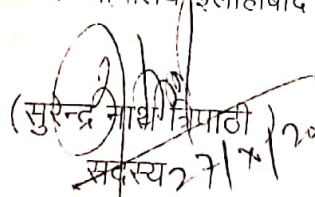 इलाहाबाद
(सुरेन्द्र नाथ त्रिपाठी)
सदस्य 27/x/20